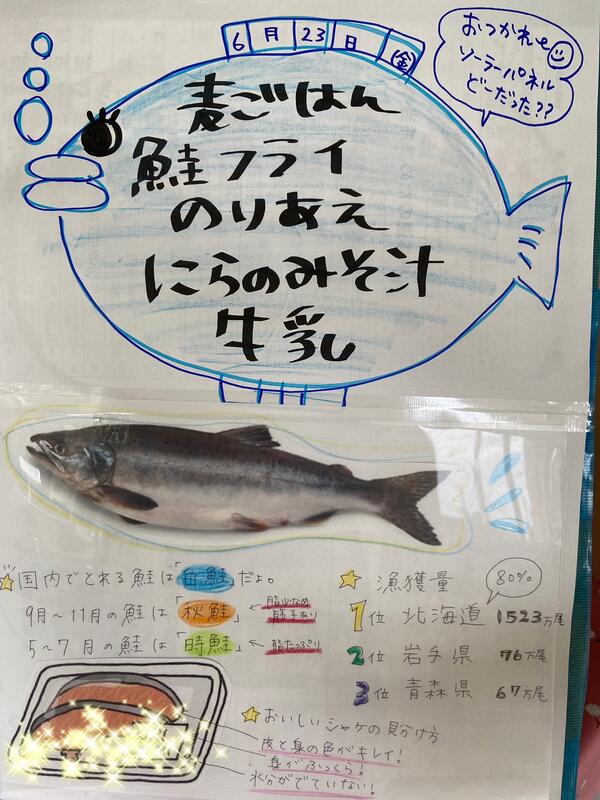 6月23日(金)
おつかれさ
ソーラーパネル
どーだった??
麦ごはん
鮭フライ
のりあえ
にらのみそ汁
牛乳
☆国内でとれる鮭は「白鮭」だよ。
9月~11月の鮭は「秋鮭」←脂少なめ
筋子あり
5~7月の鮭は「時鮭」←脂たっぷり
☆漁獲量
80%
1位 北海道 1523万尾
2位 岩手県 76万尾
3位 青森県 67万尾
☆おいしいシャケの見分け方
皮と身の色がキレイ!
身がふっくら!
水分がでていない!